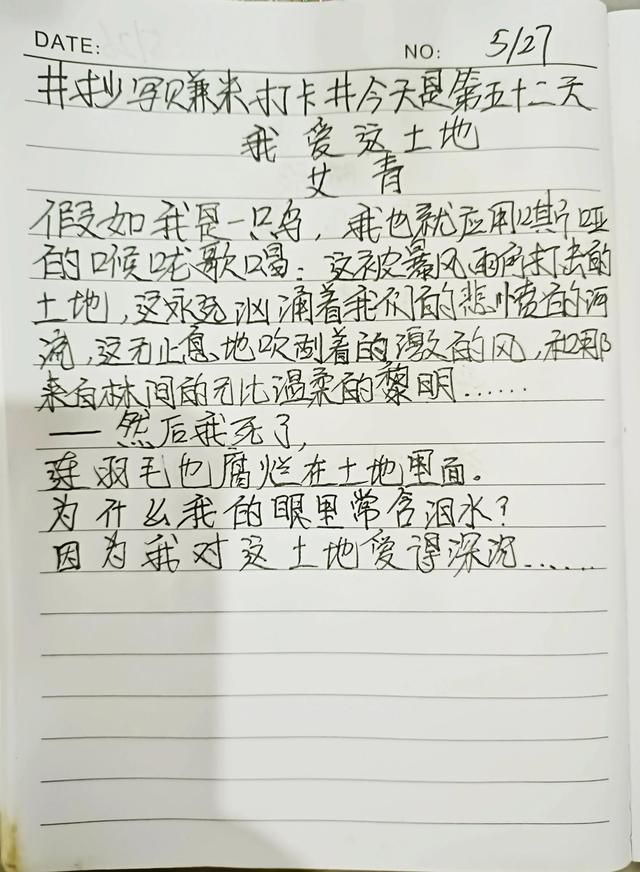 DATE:
NO: 5/27
#抄写赚米打卡#今天是第五十二天
我爱这土地
艾青
假如我是一只鸟,我也就应用嘶哑
的喉咙歌唱:这被暴风雨所打击的
土地,这永远汹涌着我们的悲愤的河
流,这无止息地吹刮着的激的风,和那
来自林间的无比温柔的黎明......
——然后我死了,
连羽毛也腐烂在土地里面。
为什么我的眼里常含泪水?
因为我对这土地爱得深沉......